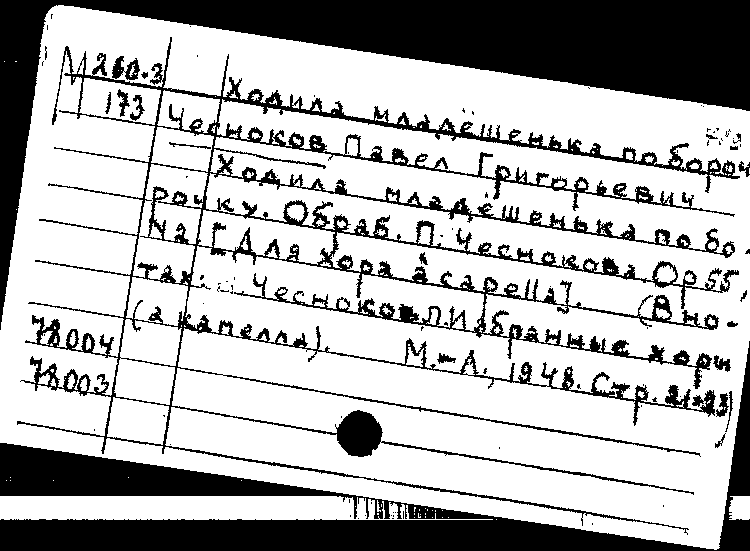 М 260.3
173
Ходила младёшенька по бороч
Чесноков, Павел Григорьевич.
Ходила младёшенька по бо-
рочку. Обраб. П. Чеснокова. Op 55,
N 2. [Для хора à capella]. (В но-
тах: Чесноков, П. Избранные хоры
(а капелла). М.-Л., 1948. Стр. 21-23)
78004
78003